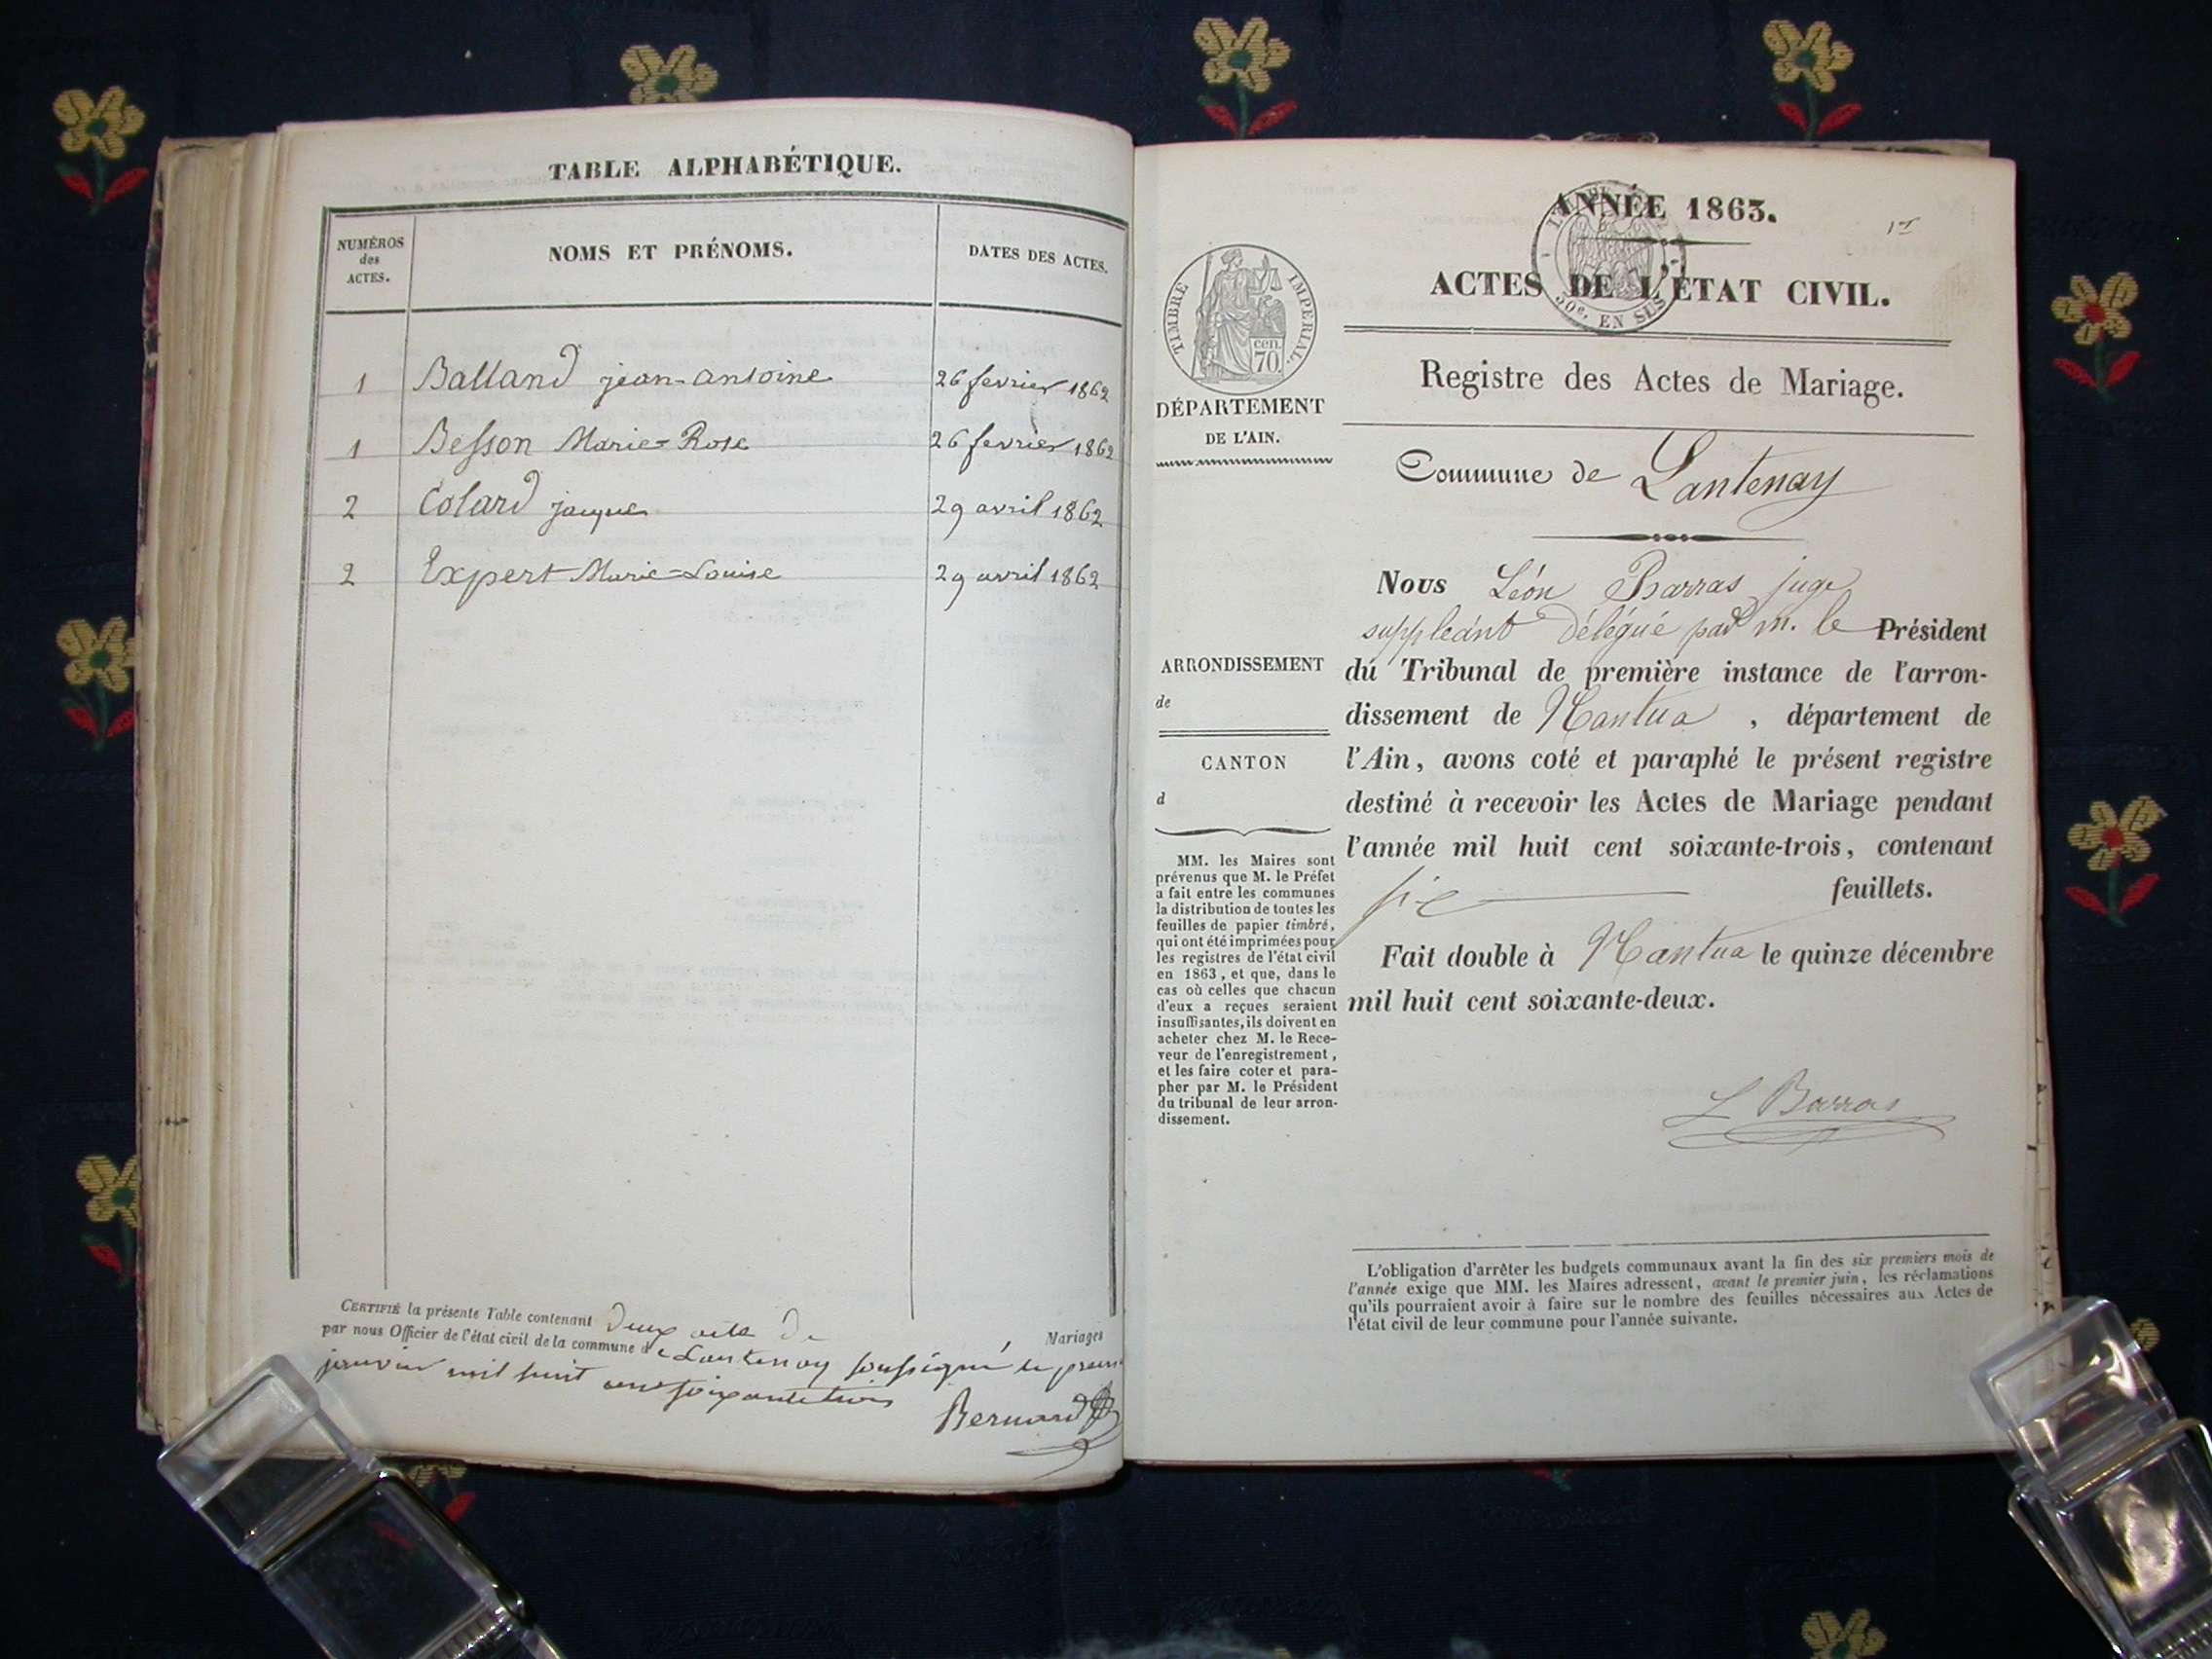 TABLE ALPHABÉTIQUE.
NUMÉROS
des
ACTES.
NOMS ET PRÉNOMS.
DATES DES ACTES.
1 Balland jean-antoine 26 fevrier 1862
1 Besson Marie-Rose 26 fevrier 1862
2 Colard jacques 29 avril 1862
2 Expert Marie-Louise 29 avril 1862
CERTIFIÉ la présente Table contenant Deux acte de Mariages
par nous Officier de l'état civil de la commune de Lantenay soussigné le
janvier mil huit cent soixante trois
Bernard
ANNÉE 1863.
1er
ACTES DE L'ÉTAT CIVIL.
50c. EN SUS
TIMBRE IMPÉRIAL.
cen.
70.
Registre des Actes de Mariage.
DÉPARTEMENT
DE L'AIN.
Commune de Lantenay
Nous Léon Barras juge
suppléant délégué par m. le Président
du Tribunal de première instance de l'arron-
dissement de Nantua , département de
l'Ain, avons coté et paraphé le présent registre
destiné à recevoir les Actes de Mariage pendant
l'année mil huit cent soixante-trois, contenant
six feuillets.
Fait double à Nantua le quinze décembre
mil huit cent soixante-deux.
L Barras
ARRONDISSEMENT
de
CANTON
d
MM. les Maires sont
prévenus que M. le Préfet
a fait entre les communes
la distribution de toutes les
feuilles de papier timbré,
qui ont été imprimées pour
les registres de l'état civil
en 1863, et que, dans le
cas où celles que chacun
d'eux a reçues seraient
insuffisantes, ils doivent en
acheter chez M. le Rece-
veur de l'enregistrement,
et les faire coter et para-
pher par M. le Président
du tribunal de leur arron-
dissement.
L'obligation d'arrêter les budgets communaux avant la fin des six premiers mois de
l'année exige que MM. les Maires adressent, avant le premier juin, les réclamations
qu'ils pourraient avoir à faire sur le nombre des feuilles nécessaires aux Actes de
l'état civil de leur commune pour l'année suivante.